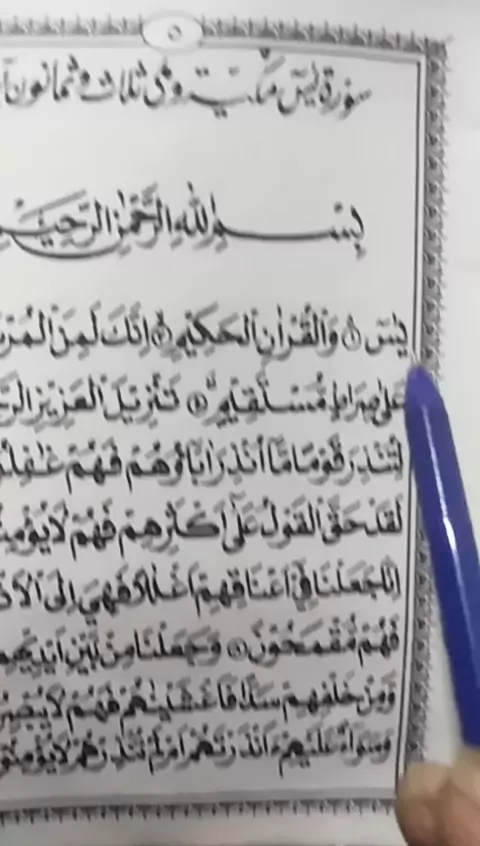 ٥
سورة يس مكية وهى ثلاث وثمانون
بِسْمِ اللهِ الرَّحْمٰنِ الرَّحِيْمِ
يٰسٓ ۝١ وَالْقُرْاٰنِ الْحَكِيْمِ ۝٢ اِنَّكَ لَمِنَ
عَلٰى صِرَاطٍ مُسْتَقِيْمٍ ۝٤ تَنْزِيْلَ الْعَزِيْزِ
لِتُنْذِرَ قَوْمًا مَّا اُنْذِرَ اٰبَاؤُهُمْ فَهُمْ
لَقَدْ حَقَّ الْقَوْلُ عَلٰى اَكْثَرِهِمْ فَهُمْ لَا
اِنَّا جَعَلْنَا فِيْ اَعْنَاقِهِمْ اَغْلَالًا فَهِيَ اِلَى
فَهُمْ مُقْمَحُوْنَ ۝٨ وَجَعَلْنَا مِنْ بَيْنِ
وَمِنْ خَلْفِهِمْ سَدًّا فَاَغْشَيْنٰهُمْ فَهُمْ لَا
وَسَوَاءٌ عَلَيْهِمْ ءَاَنْذَرْتَهُمْ اَمْ لَمْ تُنْذِرْهُمْ لَا